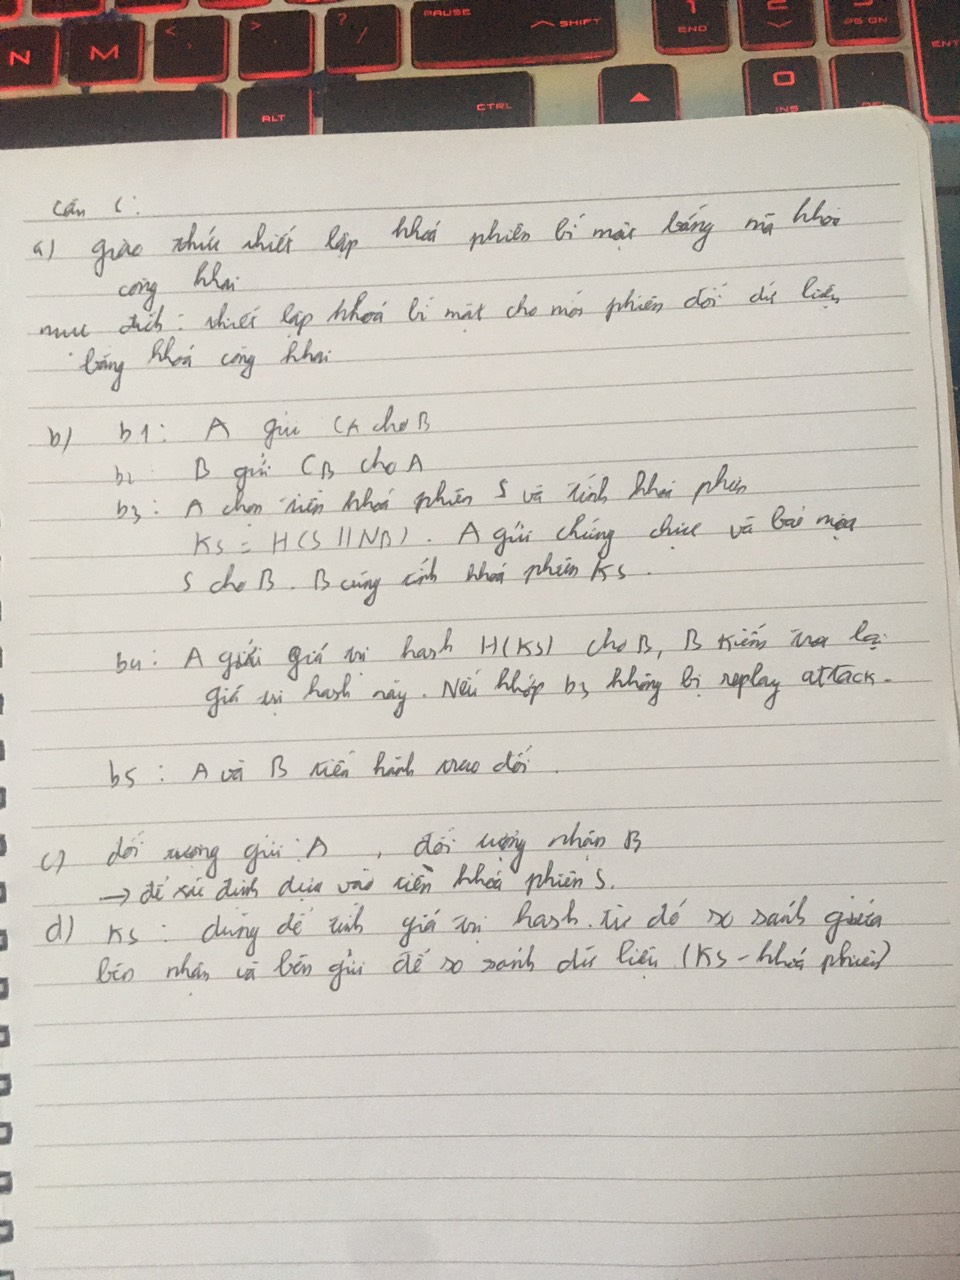 N M < , > . ? / PAUSE SHIFT 1 END 2 3 PG ON ENT
ALT CTRL 0 INS DEL
Câu 1:
a) giao thức thiết lập khoá phiên bí mật bằng mã khoá
công khai
mục đích: thiết lập khoá bí mật cho mỗi phiên đổi dữ liệu
bằng khoá công khai
b) b1: A gửi CA cho B
b2 B gửi CB cho A
b3: A chọn tiền khoá phiên S và tính khoá phiên
KS = H(S || NB). A gửi chứng thực và bảo mật
S cho B. B cũng tính khoá phiên KS.
b4: A gửi giá trị hash H(KS) cho B, B kiểm tra lại
giá trị hash này. Nếu khớp b3 không bị replay attack.
b5: A và B tiến hành trao đổi.
c) đối tượng gửi: A, đối tượng nhận B
→ để xác định dựa vào tiền khoá phiên S.
d) KS: dùng để tính giá trị hash. từ đó so sánh giữa
bên nhận và bên gửi để so sánh dữ liệu (KS - khoá phiên)